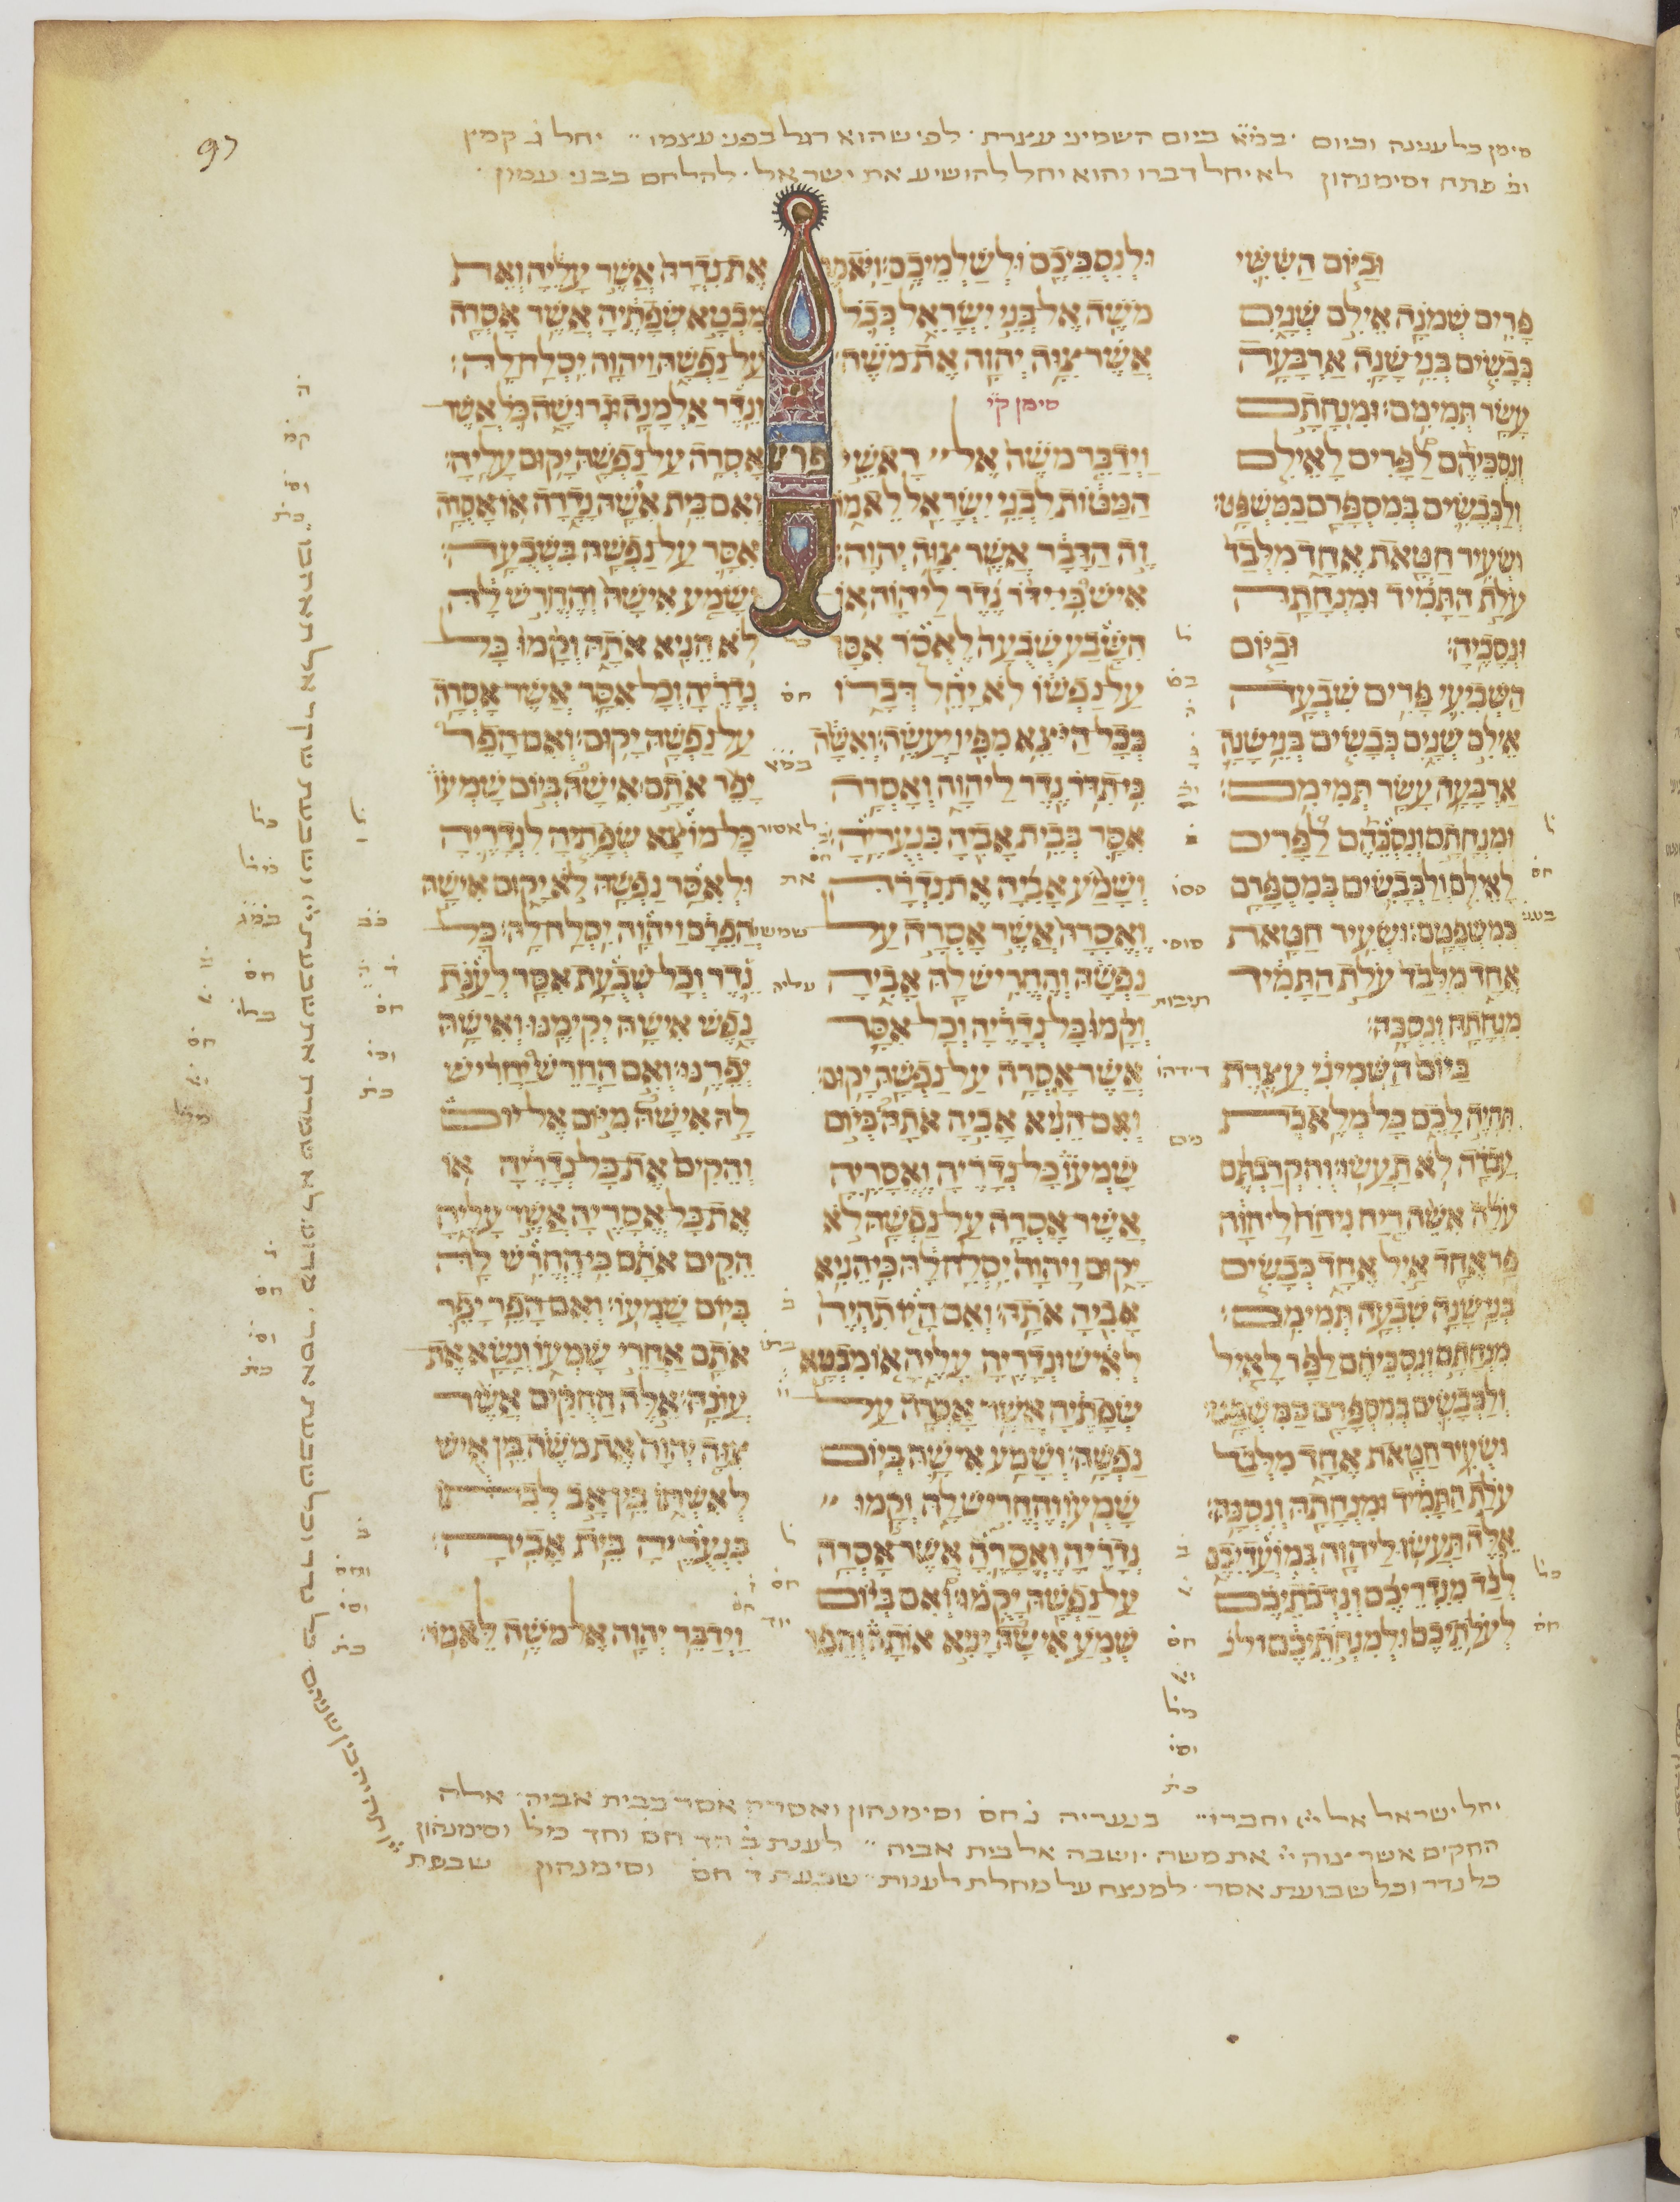 סימן כל ענינה וביום · במא ביום השמיני עצרת · לפי שהוא רגל בפני עצמו ״ יחל ג קמץ
וב פתח וסימנהון לא יחל דברו והוא יחל להושיע את ישראל · להלחם בבני עמון ·
97
וביום הששי
פרים שמנה אילם שנים
כבשים בני שנה ארבעה
עשר תמימם׃ ומנחתם
ונסכיהם לפרים לאילם
ולכבשים במספרם כמשפט׃
ושעיר חטאת אחד מלבד
עלת התמיד ומנחתה
ונסכיה׃ וביום
השביעי פרים שבעה
אילם שנים כבשים בני שנה
ארבעה עשר תמימם׃
ומנחתם ונסכהם לפרים
לאילם ולכבשים במספרם
כמשפטם׃ ושעיר חטאת
אחד מלבד עלת התמיד
מנחתה ונסכה׃
ביום השמיני עצרת
תהיה לכם כל מלאכת
עבדה לא תעשו׃ והקרבתם
עלה אשה ריח ניחח ליהוה
פר אחד איל אחד כבשים
בני שנה שבעה תמימם׃
מנחתם ונסכיהם לפר לאיל
ולכבשים במספרם כמשפט׃
ושעיר חטאת אחד מלבד
עלת התמיד ומנחתה ונסכה׃
אלה תעשו ליהוה במועדיכם
לבד מנדריכם ונדבתיכם
לעלתיכם ולמנחתיכם ולנ
ולנסכיכם ולשלמיכם׃ ויאמר
משה אל בני ישראל ככל
אשר צוה יהוה את משה׃
סימן קי
וידבר משה אל ״ ראשי
פרש
המטות לבני ישראל לאמר
זה הדבר אשר צוה יהוה׃
איש כי ידר נדר ליהוה או
השבע שבעה לאסר אסר
על נפשו לא יחל דברו
ככל היצא מפיו יעשה׃ ואשה
כי תדר נדר ליהוה ואסרה
אסר בבית אביה בנעריה׃
ושמע אביה את נדרה
ואסרה אשר אסרה על
נפשה והחריש לה אביה
וקמו כל נדריה וכל אסר
אשר אסרה על נפשה יקום׃
ואם הניא אביה אתה ביום
שמעו כל נדריה ואסריה
אשר אסרה על נפשה לא
יקום ויהוה יסלח לה כי הניא
אביה אתה׃ ואם היו תהיה
לאיש ונדריה עליה או מבטא
שפתיה אשר אסרה על
נפשה׃ ושמע אישה ביום
שמעו והחריש לה וקמו ״
נדריה ואסרה אשר אסרה
על נפשה יקמו׃ ואם ביום
שמע אישה יניא אותה והפר
את נדרה אשר עליה ואת
מבטא שפתיה אשר אסרה
על נפשה ויהוה יסלח לה׃
ונדר אלמנה וגרושה כל אשר
אסרה על נפשה יקום עליה׃
ואם בית אישה נדרה או אסרה
אסר על נפשה בשבעה׃
ושמע אישה והחרש לה
לא הניא אתה וקמו כל
נדריה וכל אסר אשר אסרה
על נפשה יקום׃ ואם הפר
יפר אתם אישה ביום שמעו
כל מוצא שפתיה לנדריה
ולאסר נפשה לא יקום אישה
הפרם ויהוה יסלח לה׃ כל
נדר וכל שבעת אסר לענת
נפש אישה יקימנו ואישה
יפרנו׃ ואם החרש יחריש
לה אישה מיום אל יום
והקים את כל נדריה או
את כל אסריה אשר עליה
הקים אתם כי החרש לה
ביום שמעו׃ ואם הפר יפר
אתם אחרי שמעו ונשא את
עונה׃ אלה החקים אשר
צוה יהוה את משה בין איש
לאשתו בין אב לבתו
בנעריה בית אביה׃
וידבר יהוה אל משה לאמר׃
יחל ישראל אל יי וחברו ״ בנעריה ג חס וסימנהון ואסרה אסר בבית אביה · אלה
החקים אשר צוה יי את משה · ושבה אל בית אביה ״ לענת ב חד חס וחד מל וסימנהון
כל נדר וכל שבועת אסר · למנצח על מחלת לענות ״ שבעת ד חס וסימנהון שבעת